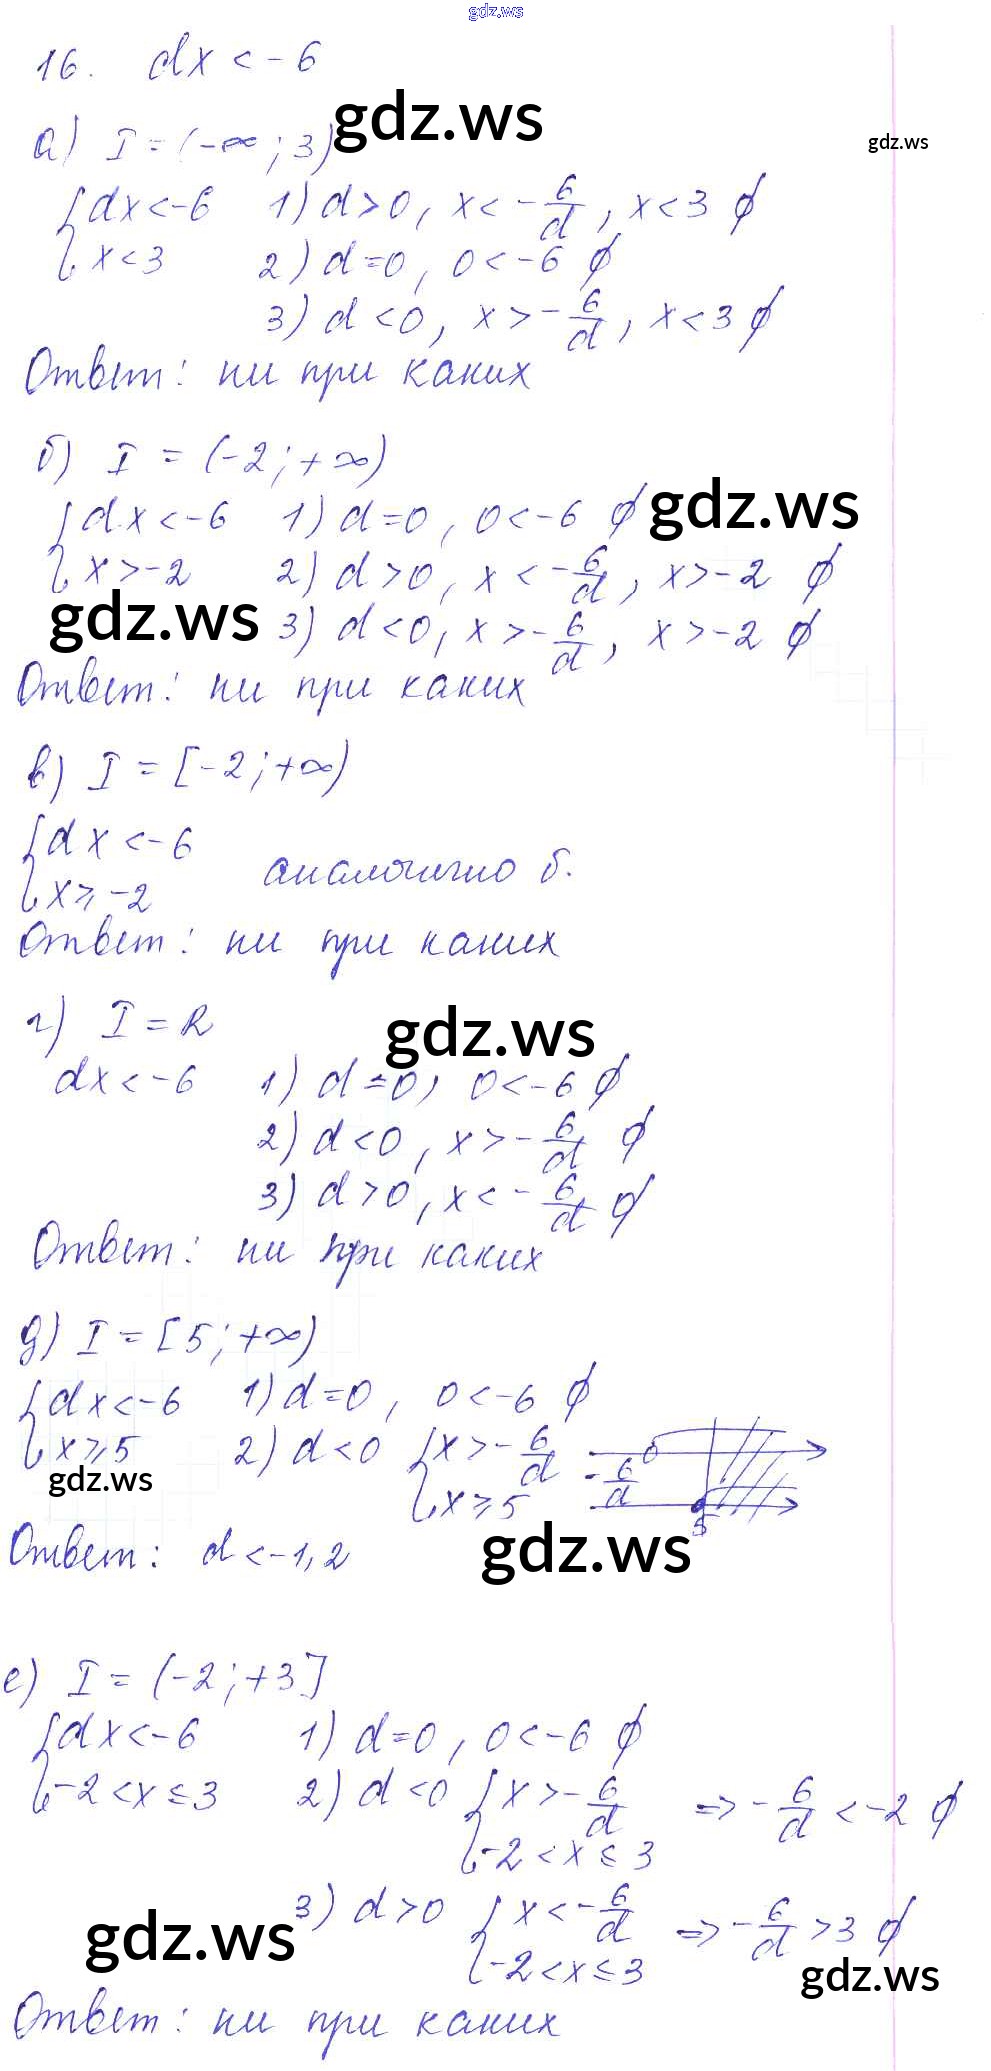 gdz.ws
16. dx < -6
а) I = (-∞; 3)
gdz.ws
gdz.ws
{dx < -6 1) d > 0, x < -6/d, x < 3 ∅
x < 3 2) d = 0, 0 < -6 ∅
3) d < 0, x > -6/d, x < 3 ∅
Ответ: ни при каких
б) I = (-2; +∞)
gdz.ws
{dx < -6 1) d = 0, 0 < -6 ∅
x > -2 2) d > 0, x < -6/d, x > -2 ∅
gdz.ws
3) d < 0, x > -6/d, x > -2 ∅
Ответ: ни при каких
в) I = [-2; +∞)
{dx < -6
x ≥ -2 аналогично б.
Ответ: ни при каких
г) I = R
gdz.ws
dx < -6 1) d = 0, 0 < -6 ∅
2) d < 0, x > -6/d ∅
3) d > 0, x < -6/d ∅
Ответ: ни при каких
д) I = [5; +∞)
{dx < -6 1) d = 0, 0 < -6 ∅
x ≥ 5 2) d < 0 {x > -6/d
x ≥ 5
-6/d
5
gdz.ws
gdz.ws
Ответ: d < -1,2
е) I = (-2; +3]
{dx < -6 1) d = 0, 0 < -6 ∅
-2 < x ≤ 3 2) d < 0 {x > -6/d => -6/d < -2 ∅
-2 < x ≤ 3
3) d > 0 {x < -6/d => -6/d > 3 ∅
-2 < x ≤ 3
gdz.ws
gdz.ws
Ответ: ни при каких